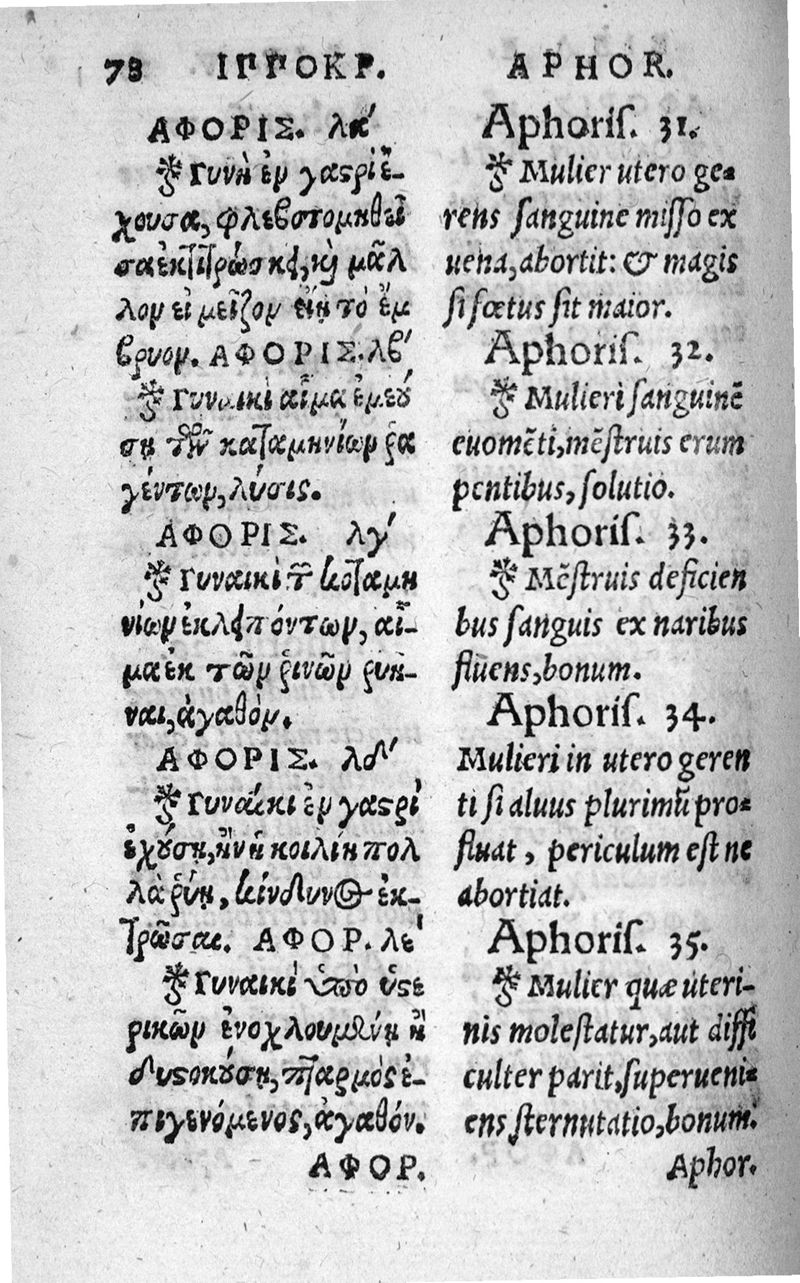 78 ΙΠΠΟΚΡ.
ΑΦΟΡΙΣ. λα′
Γυνὴ ἐν γαστρὶ ἔ-
χουσα, φλεβοτομηθεῖ
σα ἐκτιτρώσκει, καὶ μᾶλ
λον εἰ μεῖζον εἴη τὸ ἔμ
βρυον. ΑΦΟΡΙΣ. λβ′
Γυναικὶ αἷμα ἐμεού
σῃ τῶν καταμηνίων ῥα
γέντων, λύσις.
ΑΦΟΡΙΣ. λγ′
Γυναικὶ τῶν καταμη
νίων ἐκλειπόντων, αἷ-
μα ἐκ τῶν ῥινῶν ῥυῆ-
ναι, ἀγαθὸν.
ΑΦΟΡΙΣ. λδ′
Γυναικι ἐν γαστρὶ
ἐχούσῃ, ἢν ἡ κοιλίη πολ
λὰ ῥύῃ, κίνδυνος ἐκ-
τρῶσαι. ΑΦΟΡ. λε′
Γυναικὶ ὑπὸ ὑστε
ρικῶν ἐνοχλουμένῃ ἢ
δυστοκούσῃ, πταρμὸς ἐ-
πιγενόμενος, ἀγαθόν.
ΑΦΟΡ.
APHOR.
Aphoris. 31.
Mulier utero ge-
rens sanguine misso ex
uena, abortit: & magis
si fœtus sit maior.
Aphoris. 32.
Mulieri sanguinẽ
euomẽti, mẽstruis erum
pentibus, solutio.
Aphoris. 33.
Mẽstruis deficien
bus sanguis ex naribus
fluens, bonum.
Aphoris. 34.
Mulieri in utero geren
ti si aluus plurimũ pro-
fluat, periculum est ne
abortiat.
Aphoris. 35.
Mulier quæ uteri-
nis molestatur, aut diffi
culter parit, superueni-
ens sternutatio, bonum.
Aphor.